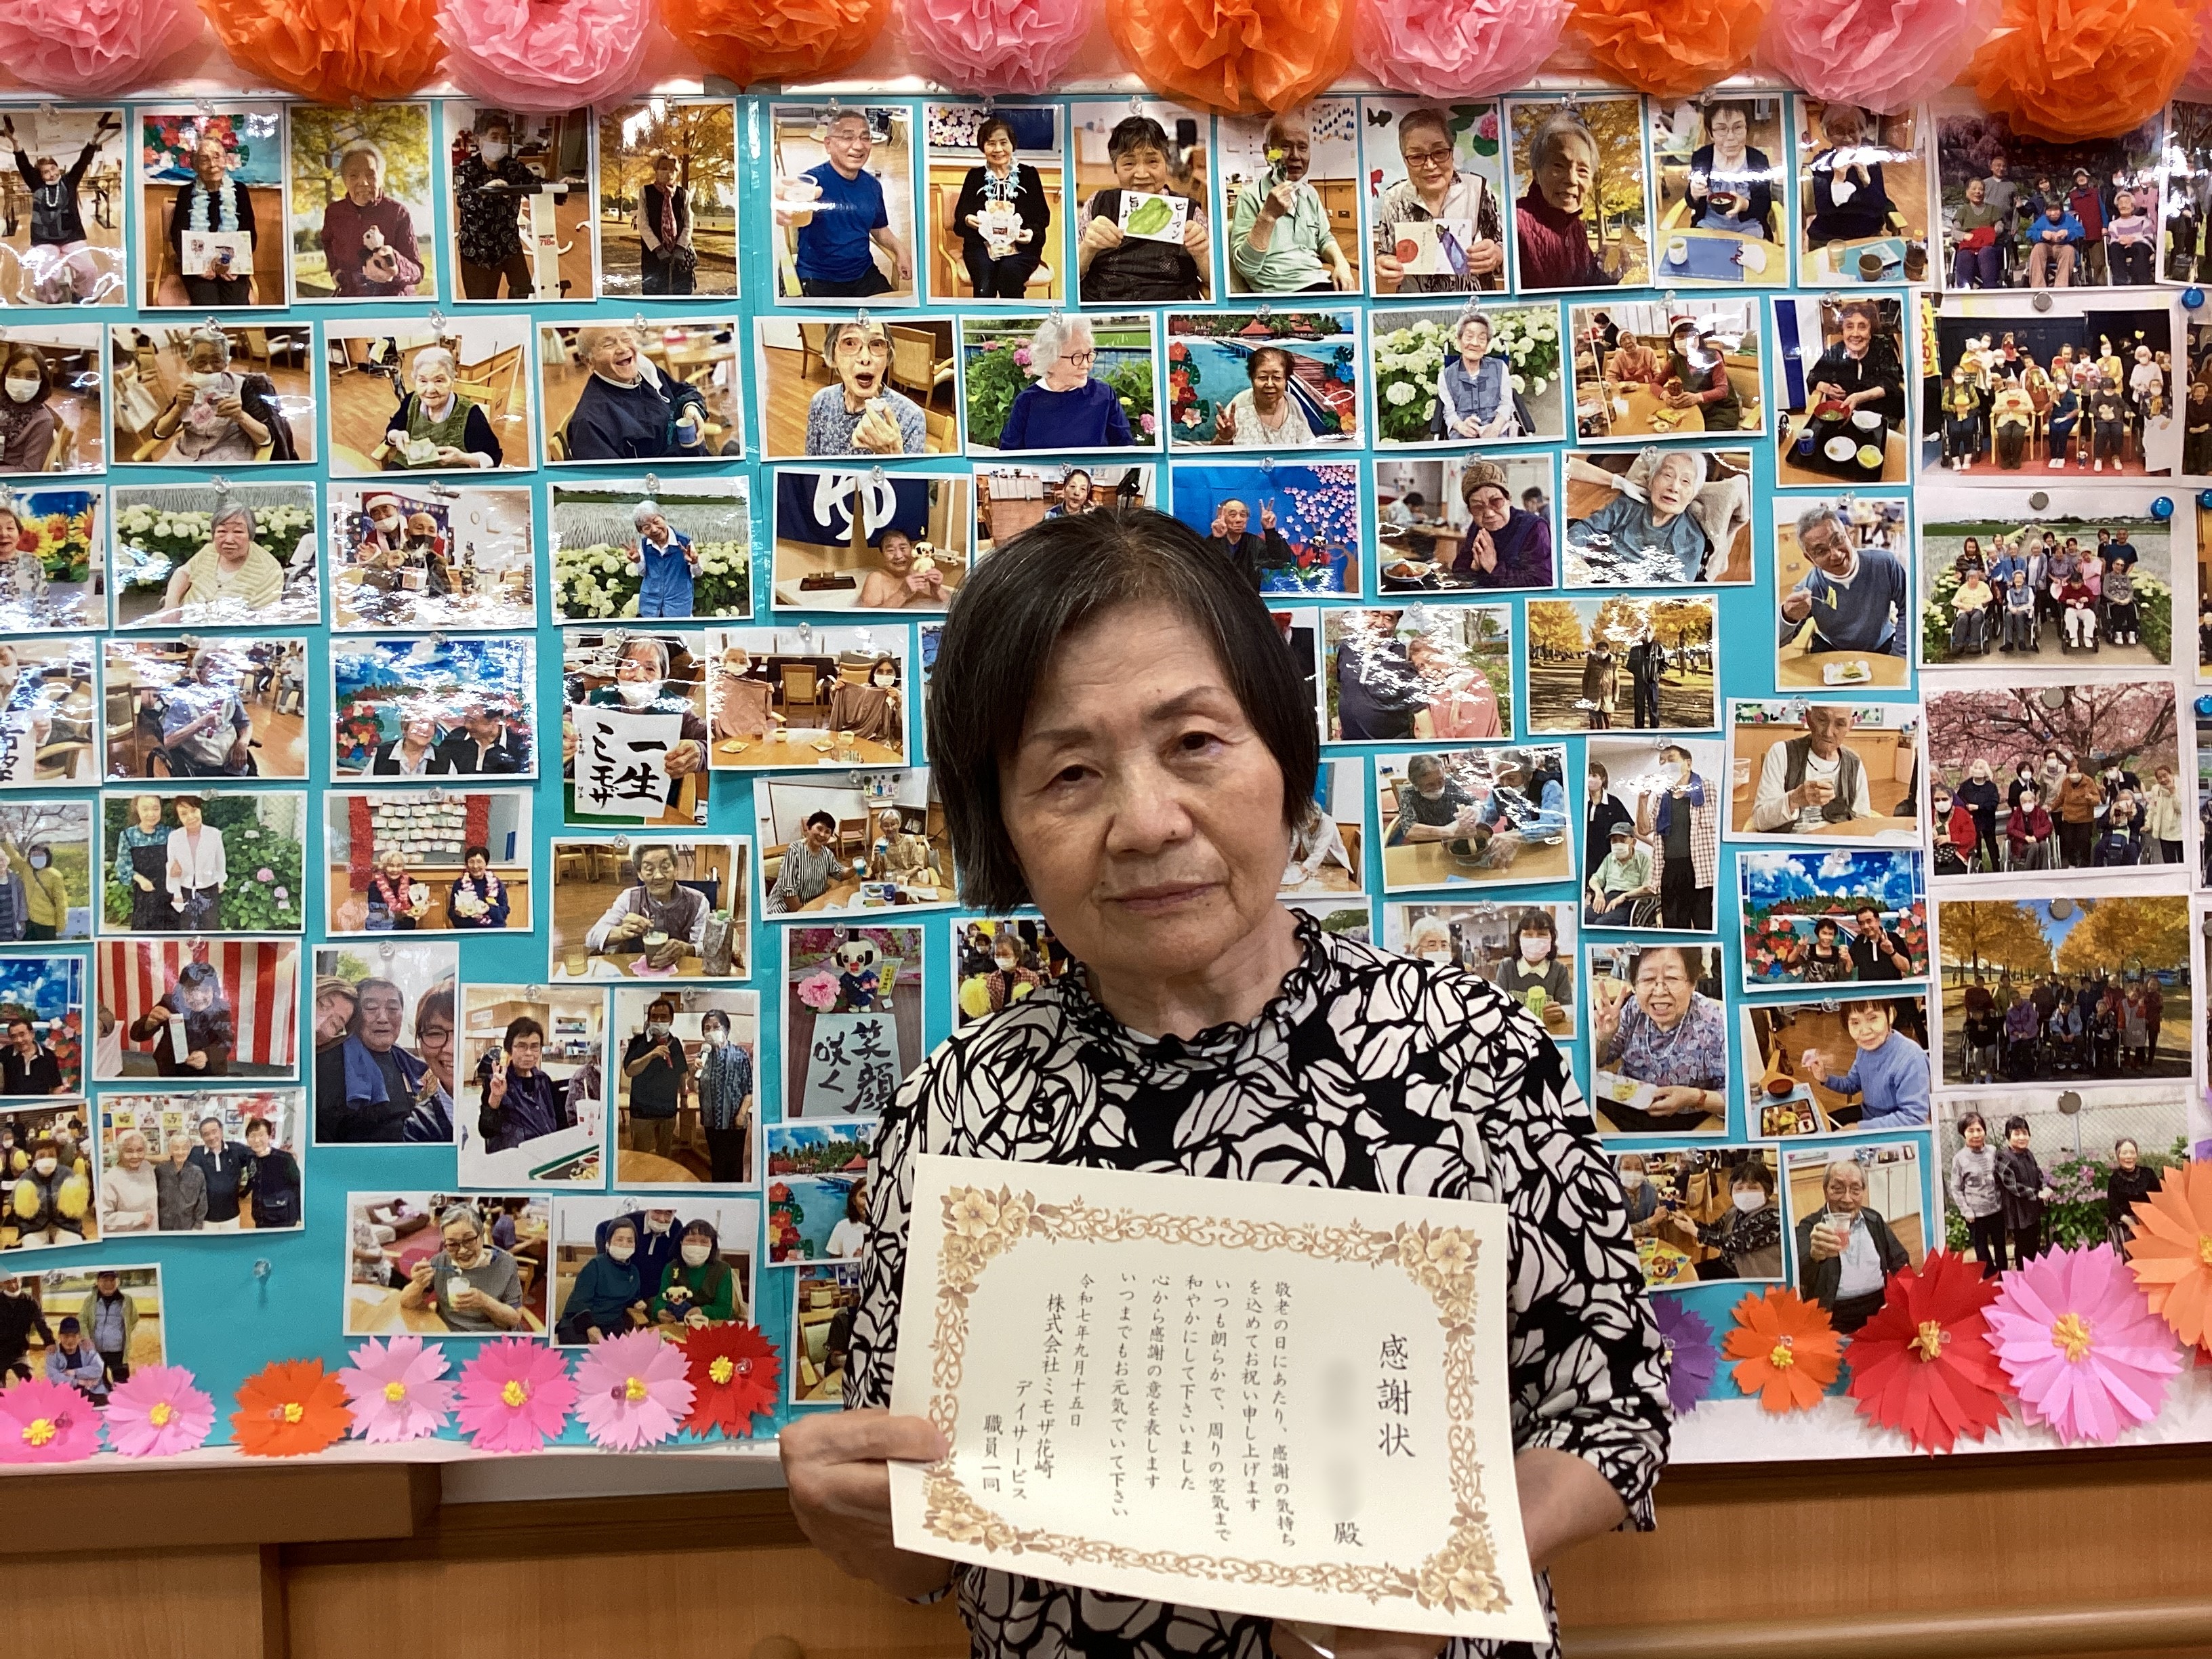 感謝状
殿
敬老の日にあたり、感謝の気持ち
を込めてお祝い申し上げます
いつも朗らかで、周りの空気まで
和やかにして下さいました
心から感謝の意を表します
いつまでもお元気でいて下さい
令和七年九月十五日
株式会社ミモザ花崎
デイサービス
職員一同
一生
ミモザ
笑顔
咲く
ピーマン